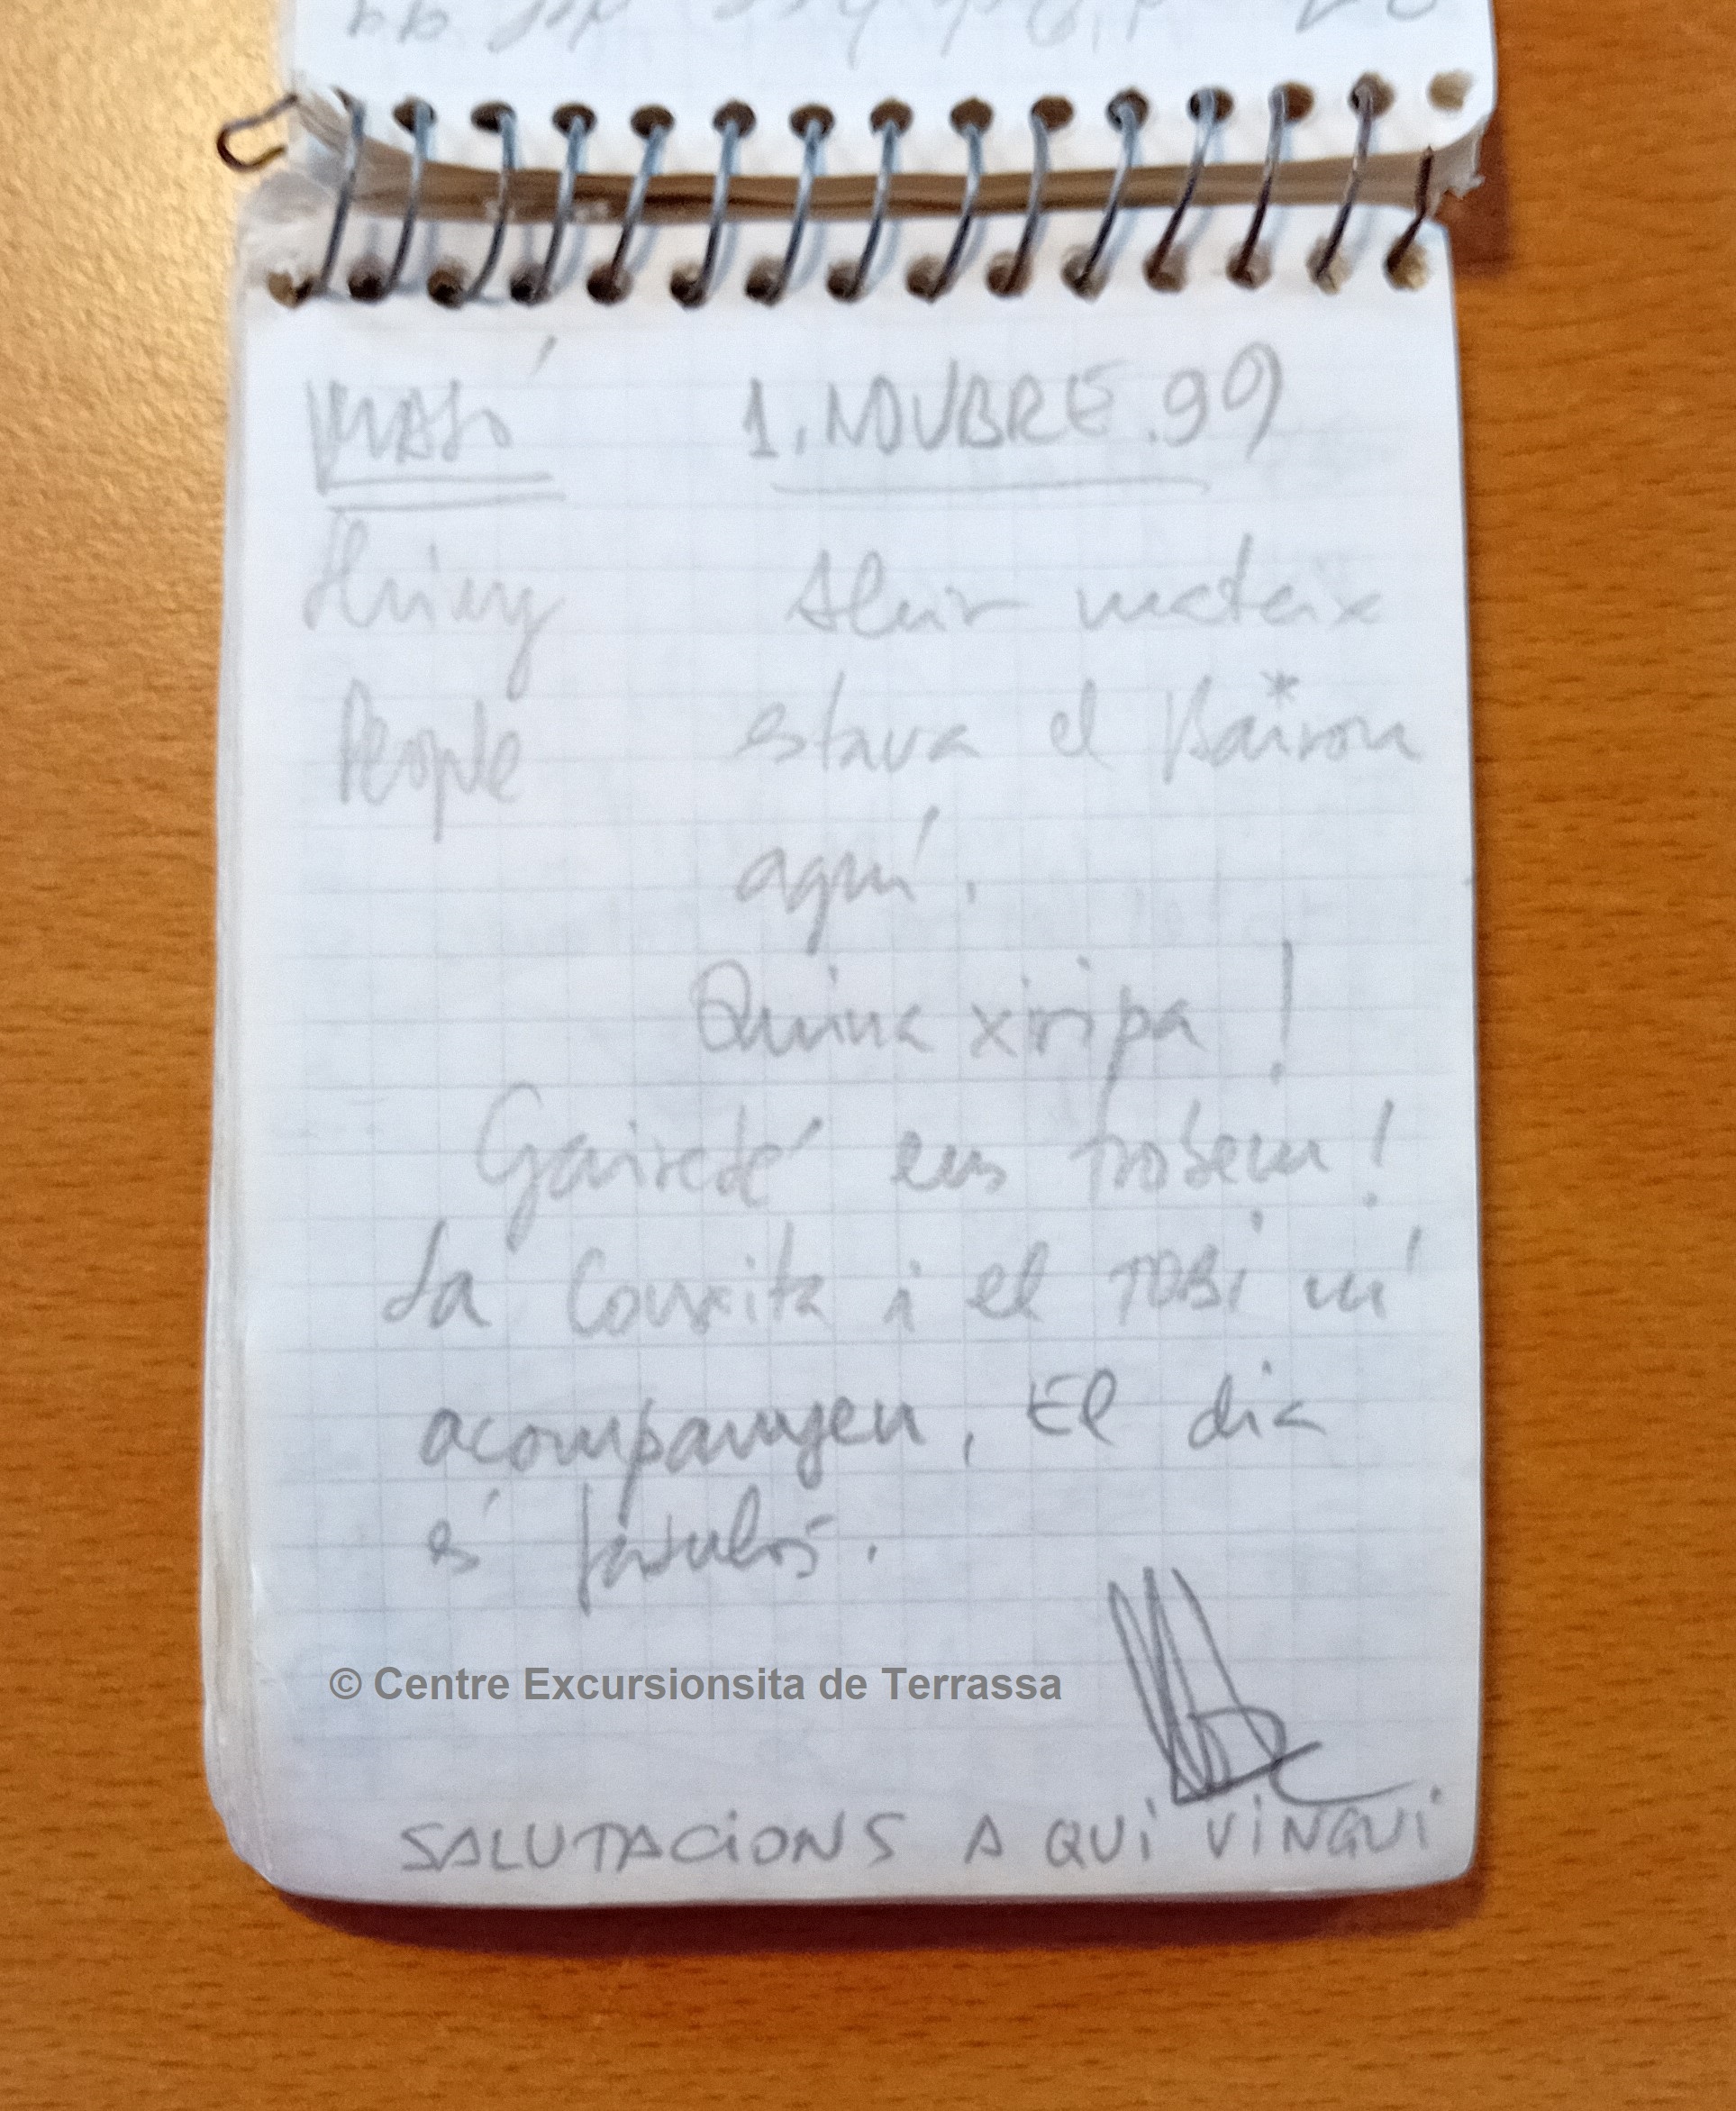 MASÓ 1. NOVBRE. 99
Shiny Ahir mateix
People estava el Bairon
aquí.
Quina xiripa!
Gairebé ens trobem!
La i el TOBI m'
acompanyen, El dia
és fabulós.
© Centre Excursionsita de Terrassa
SALUTACIONS A QUI VINGUI